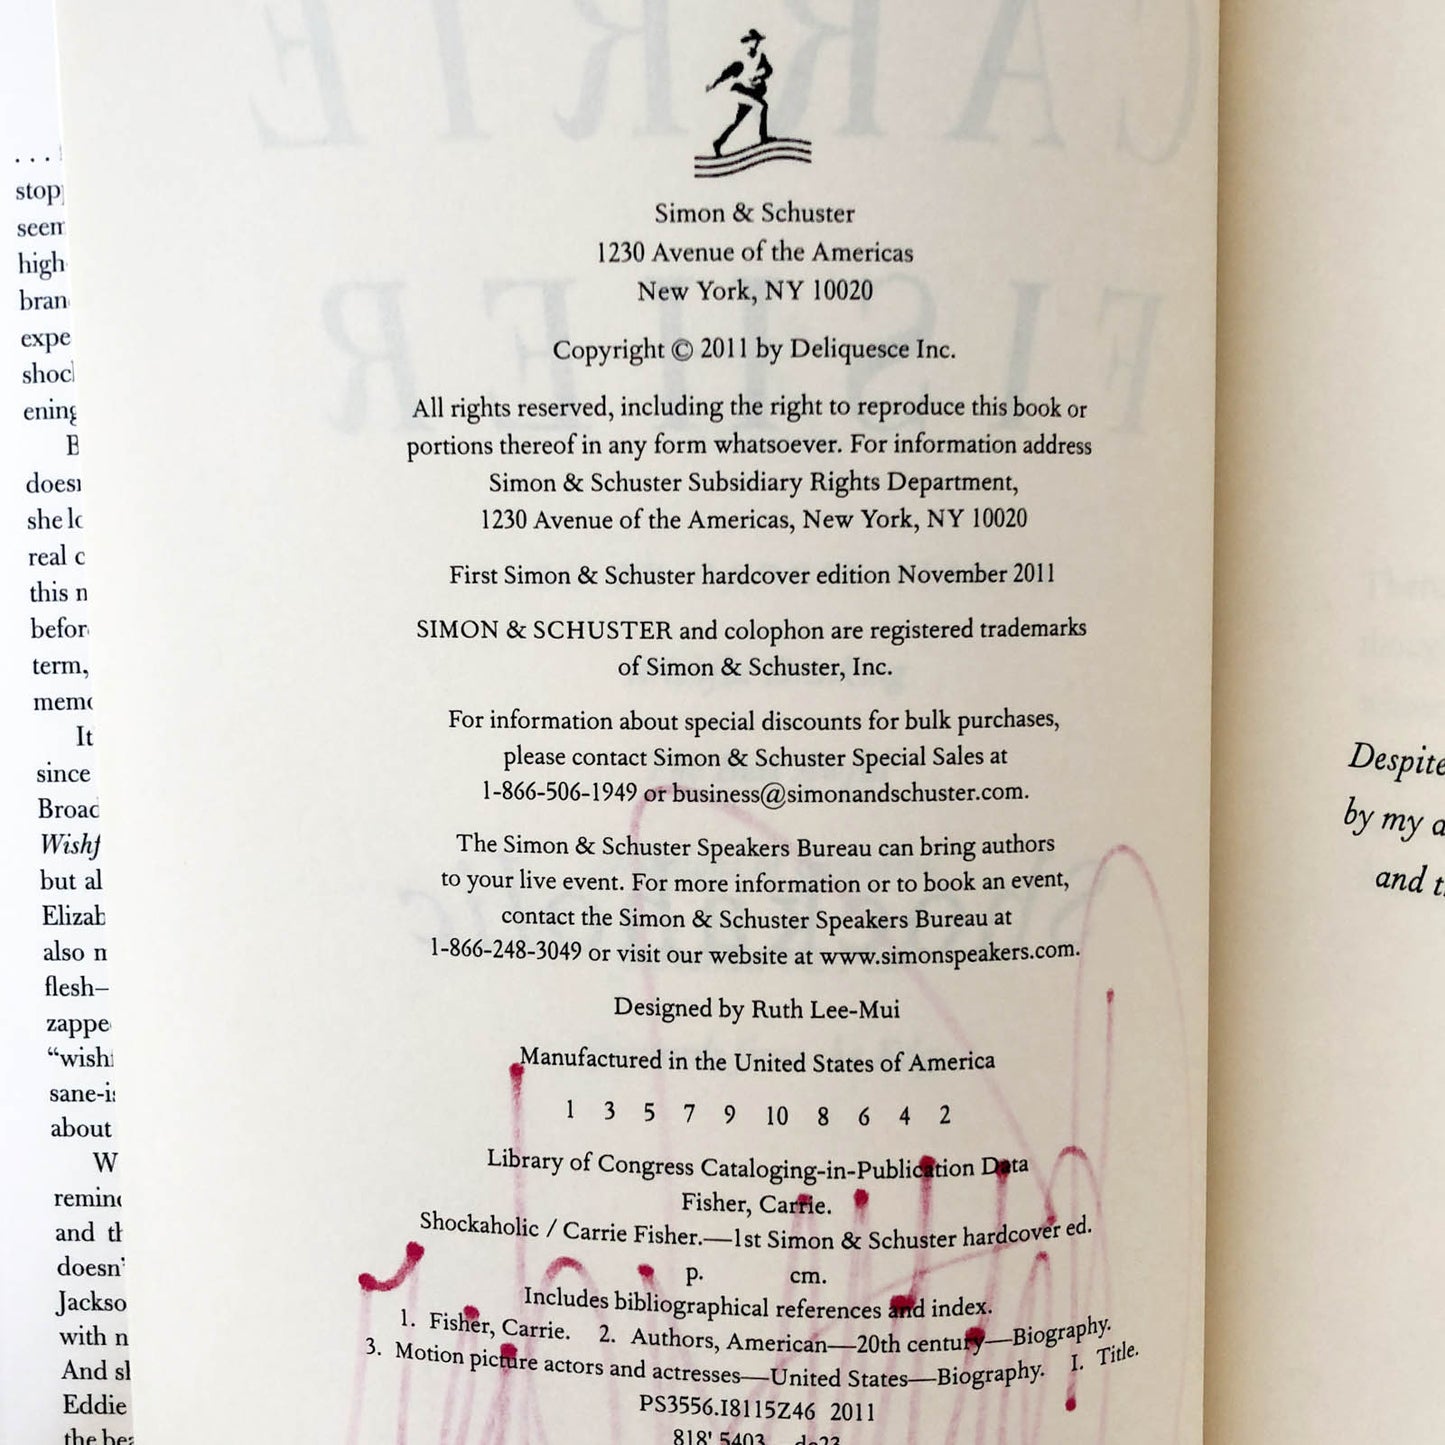 . . .
stop
seem
high
bran
expe
shoc
ening
B
does
she lo
real c
this n
befor
term,
memo
It
since
Broad
Wishf
but al
Elizab
also n
flesh–
zappe
“wish
sane-i
about
W
remin
and th
doesn’
Jackso
with n
And sh
Eddie
the bea
CARRIE
FISHER
Simon & Schuster
1230 Avenue of the Americas
New York, NY 10020
Copyright © 2011 by Deliquesce Inc.
All rights reserved, including the right to reproduce this book or
portions thereof in any form whatsoever. For information address
Simon & Schuster Subsidiary Rights Department,
1230 Avenue of the Americas, New York, NY 10020
First Simon & Schuster hardcover edition November 2011
SIMON & SCHUSTER and colophon are registered trademarks
of Simon & Schuster, Inc.
For information about special discounts for bulk purchases,
please contact Simon & Schuster Special Sales at
1-866-506-1949 or business@simonandschuster.com.
The Simon & Schuster Speakers Bureau can bring authors
to your live event. For more information or to book an event,
contact the Simon & Schuster Speakers Bureau at
1-866-248-3049 or visit our website at www.simonspeakers.com.
Designed by Ruth Lee-Mui
Manufactured in the United States of America
1 3 5 7 9 10 8 6 4 2
Library of Congress Cataloging-in-Publication Data
Fisher, Carrie.
Shockaholic / Carrie Fisher.—1st Simon & Schuster hardcover ed.
p. cm.
Includes bibliographical references and index.
1. Fisher, Carrie. 2. Authors, American—20th century—Biography.
3. Motion picture actors and actresses—United States—Biography. I. Title.
PS3556.I8115Z46 2011
818'.5403 dc23
Despite
by my a
and t